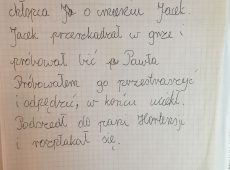 chłopca o imieniu Jacek.
Jacek przeszkadzał w grze i
próbował bić p. Pawła
Próbowałem go przestraszyć
i odpędzić, w końcu uciekł.
Podszedł do pani Hortensji
i rozpłakał się.